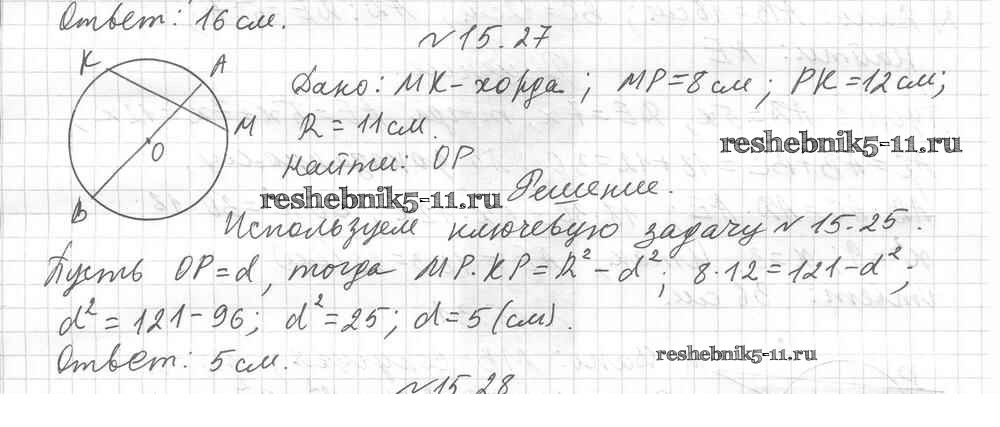 Ответ: 16 см.
№15.27
K A
Дано: MK - хорда; MP = 8 см; PK = 12 см;
M R = 11 см.
reshebnik5-11.ru
O Найти: OP
reshebnik5-11.ru Решение.
B
Используем ключевую задачу №15.25.
Пусть OP = d, тогда MP·KP = R² - d²; 8·12 = 121 - d²;
d² = 121 - 96; d² = 25; d = 5 (см).
Ответ: 5 см. reshebnik5-11.ru
№15.28